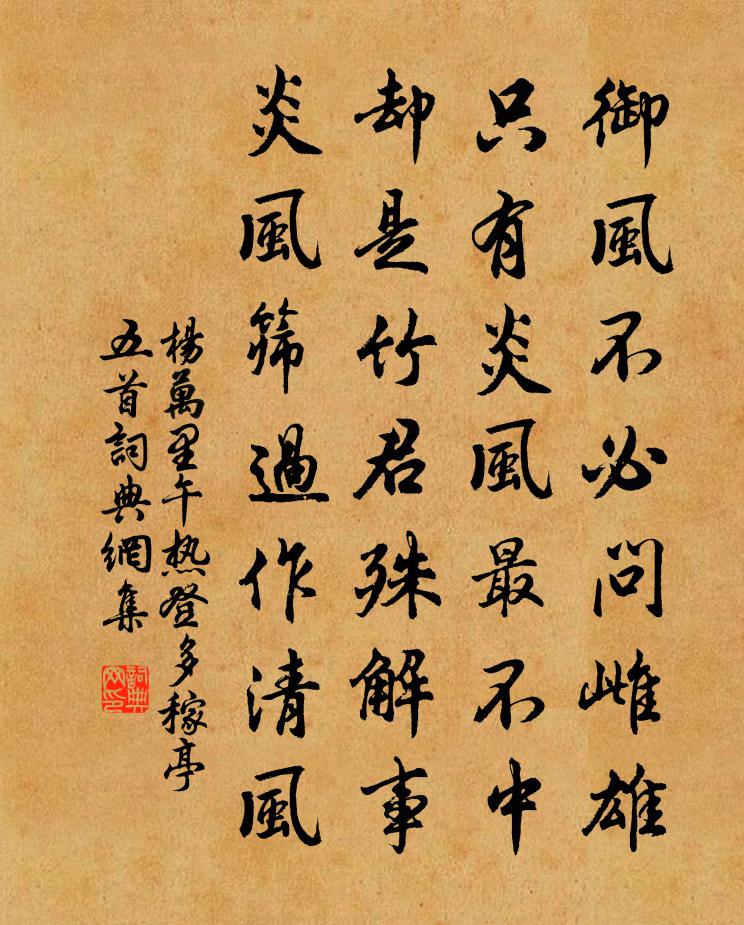 御風不必問雌雄
只有炎風最不中
却是竹君殊解事
炎風篩過作清風
楊萬里午热登多稼亭
五首詞典網集
詞典网印